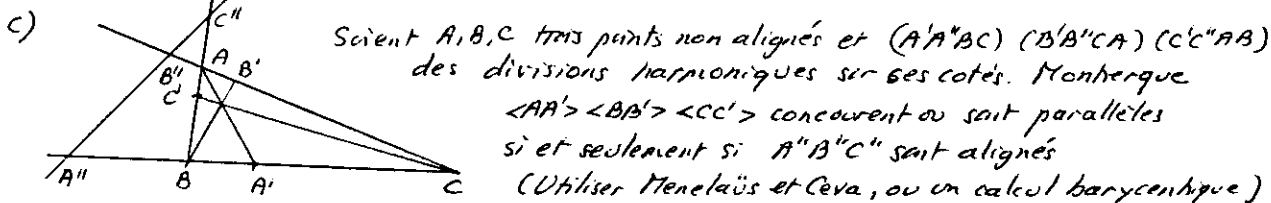 c)
Soient A, B, C trois points non alignés et (A'A"BC) (B'B"CA) (C'C"AB)
des divisions harmoniques sur ses cotés. Montrer que
<AA'> <BB'> <CC'> concourent ou sont parallèles
si et seulement si A"B"C" sont alignés
(Utiliser Menelaüs et Ceva, ou un calcul barycentrique)
C"
A
B'
B"
C'
A"
B
A'
C